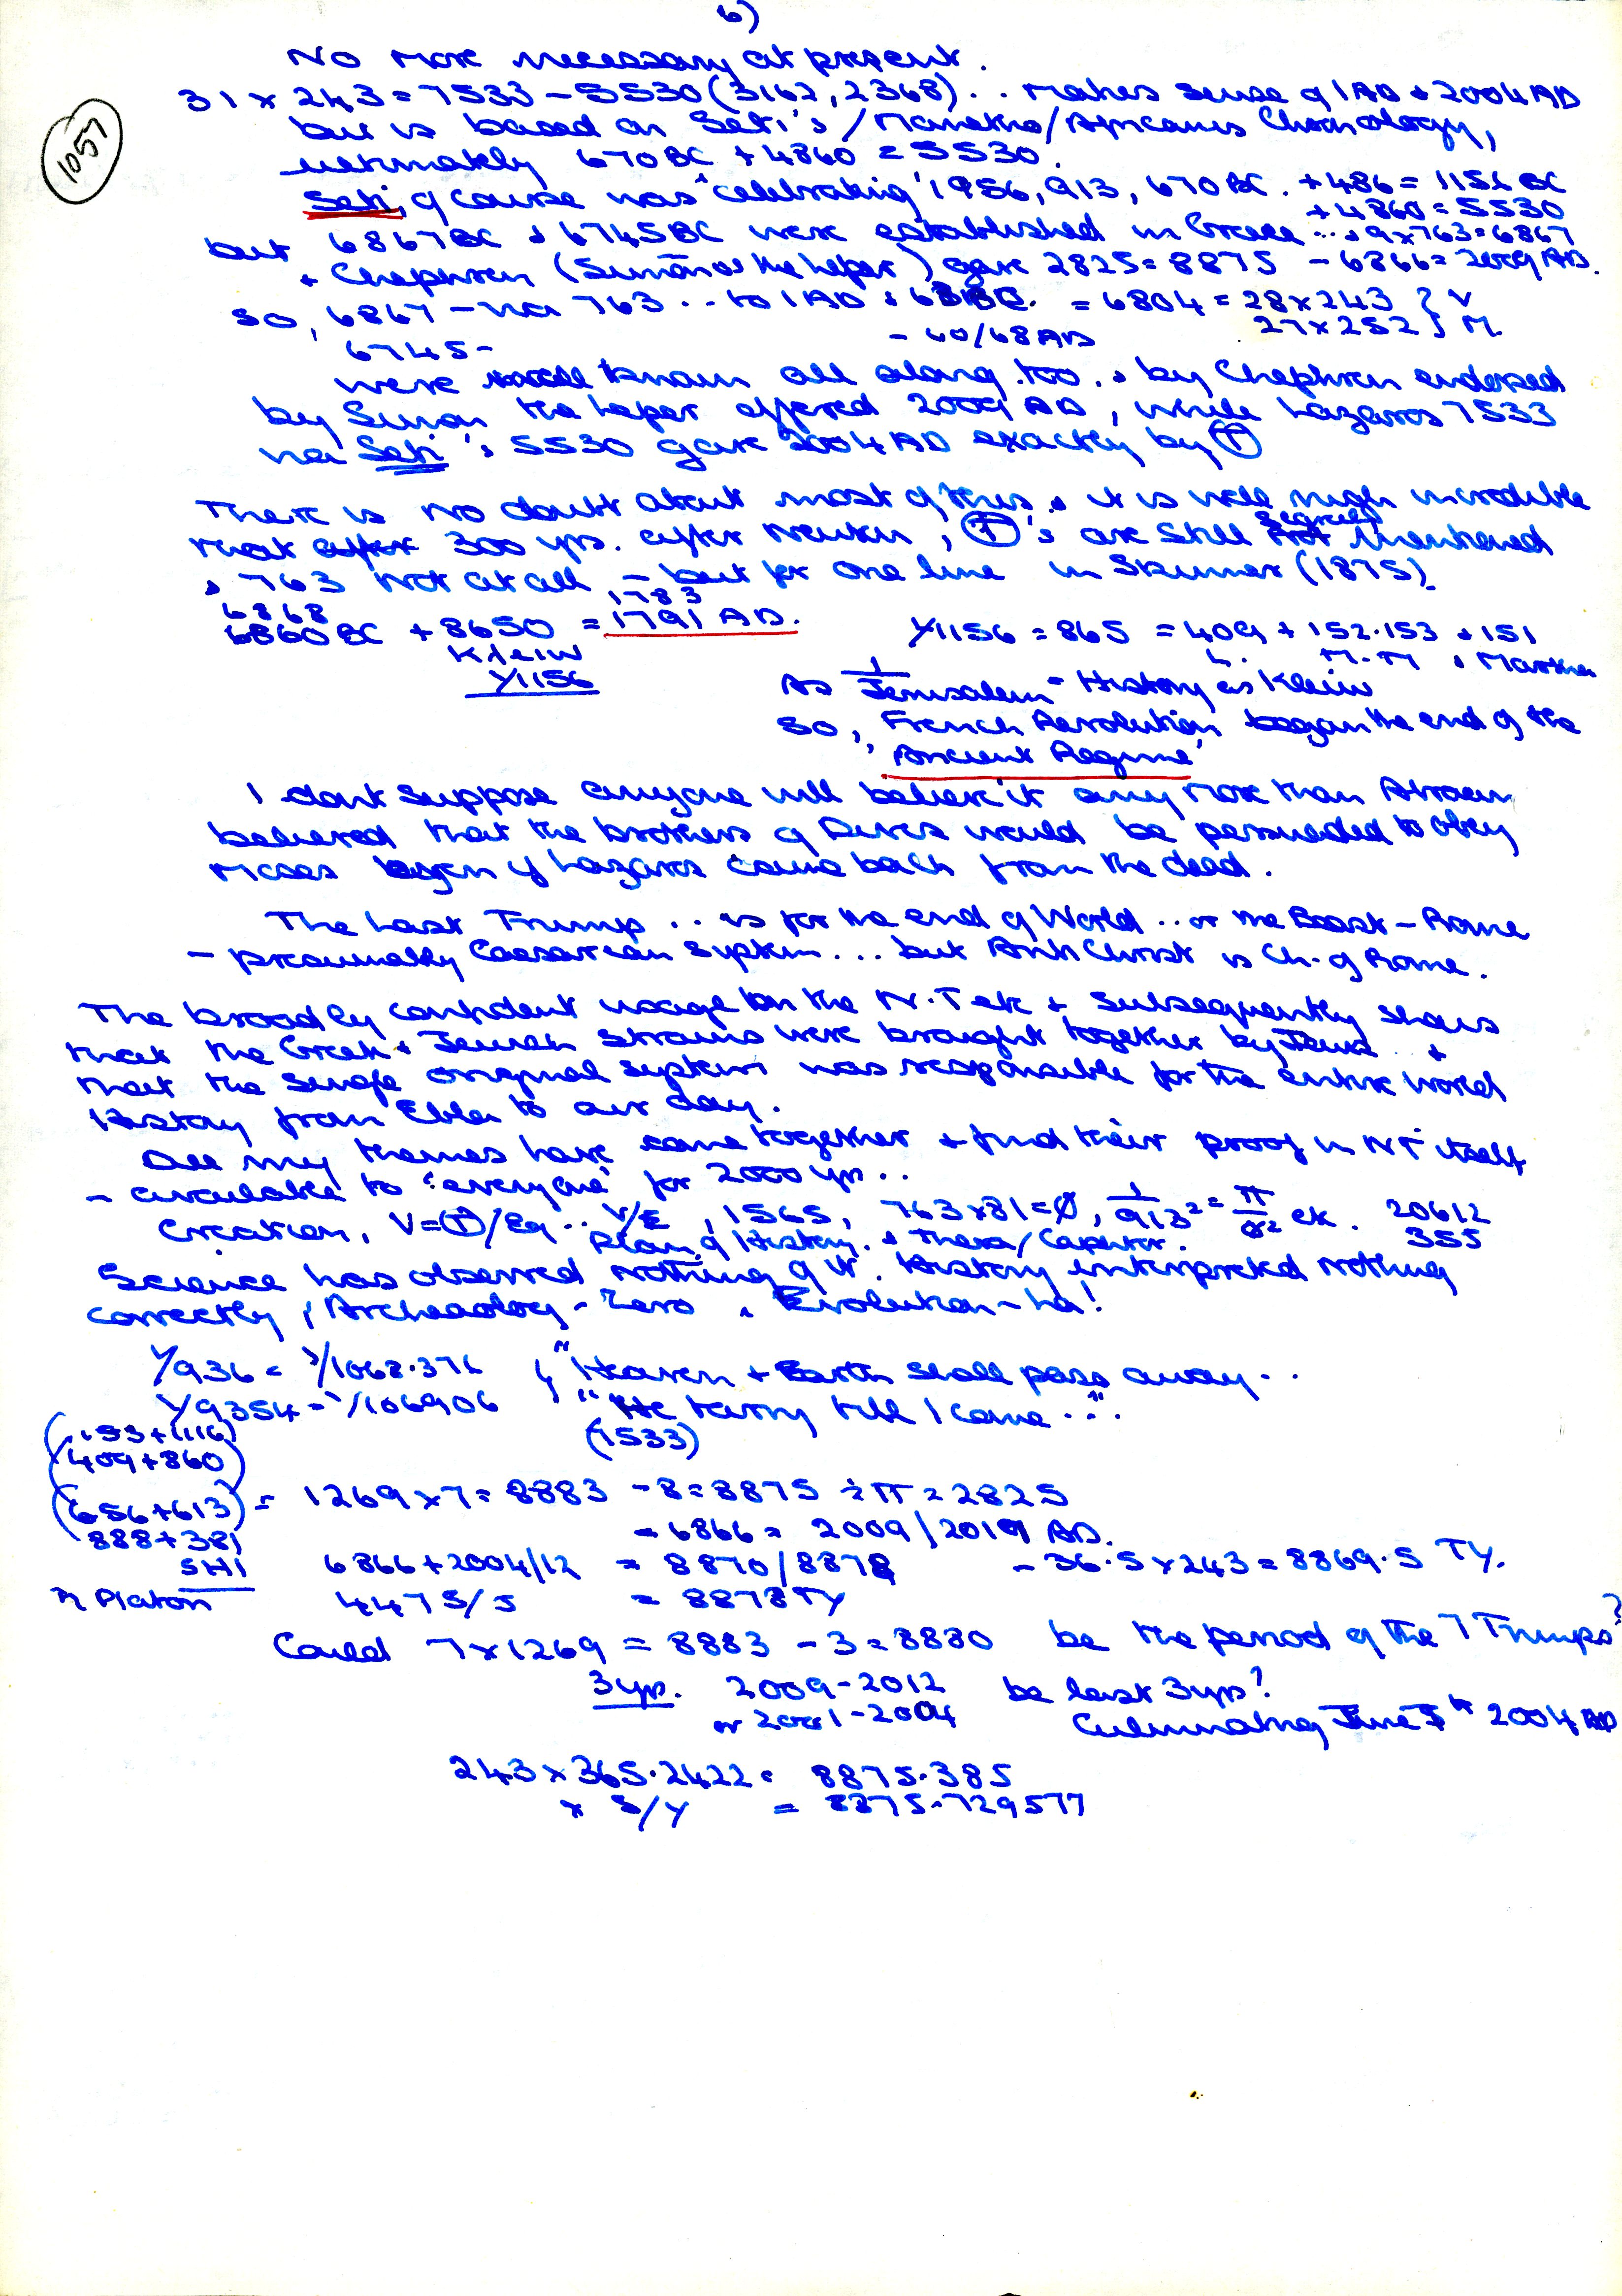 6)
1057
No more necessary at present.
31 x 243 = 7533 - 5530 (3162, 2368) .. makes sense of 1 AD + 2004 AD
but is based on Seti's / Manetho / Africanus Chronology,
ultimately 670 BC + 4860 = 5530.
Seti, of course was 'celebrating' 1956, 913, 670 BC. + 486 = 1156 BC
+ 4860 = 5530
but 6867 BC & 6745 BC were established in Greece ... & 9 x 763 = 6867
+ Chephren (Simon the leper) gave 2825 = 8875 - 6866 = 2009 AD.
So, 6867 - via 763 .. to 1 AD & 63 BC. = 6804 = 28 x 243 } V
6745 - - 60/68 AD 27 x 252 } M.
were well known all along too. & by Chephren endorsed
by Simon the leper offered 2009 AD, while Lazaros 7533
via Seti's 5530 gave 2004 AD exactly by T
There is no doubt about most of this & it is well nigh incredible
that after 300 yrs. after Newton, T's are still not mentioned
& 763 not at all, - but for one line in Skinner (1875)
6868 1783
6860 BC + 8650 = 1791 AD. Y1156 = 865 = 409 + 152.153 & 151
Klein L. M.M & Martha
Y1156
As 1/Jerusalem = History as Klein
So, French Revolution began the end of the
'Ancient Regime'
I dont suppose anyone will believe it any more than Abraham
believed that the brothers of Dives would be persuaded to obey
Moses even if Lazaros came back from the dead.
The Last Trump .. is for the end of World .. or the Beast - Rome
- presumably Caesarean system ... but Anti Christ is Ch. of Rome.
The broadly confident usage in the N.T etc + subsequently shows
that the Greek + Jewish strains were brought together by Jesus .. +
that the single original system was responsible for the entire World
History from Ebla to our day.
All my themes have come together + find their proof in NT itself
- available to 'everyone' for 2000 yrs ..
Creation, V=T/Eq .. V/E, 1565, 763 x 81 = Ø, 1/913² = π/α² etc. 20612
Plan of History. & Thera/Caphtor. 355
Science has observed nothing of it. History interpreted nothing
correctly, Archaeology - Zero & Evolution - ha!
Y936 = Y1068.376 , "Heaven + Earth shall pass away...
Y9354 = Y106906 , "He tarry till I come ..".
(153+1116) (1533)
(409+860)
(656+613) = 1269 x 7 = 8883 - 8 = 8875 ÷ π = 2825
888+381 - 6866 = 2009/2019 AD.
SHI 6866 + 2004/12 = 8870/8878 - 36.5 x 243 = 8869.5 TY.
n Platon 4475/5 = 8878 TY
Could 7 x 1269 = 8883 - 3 = 8880 be the period of the 7 Trumps?
3 yrs. 2009-2012 be last 3 yrs?
or 2001-2004 Culminating June 2004 AD
243 x 365.2422 = 8875.385
x S/Y = 8875.729577